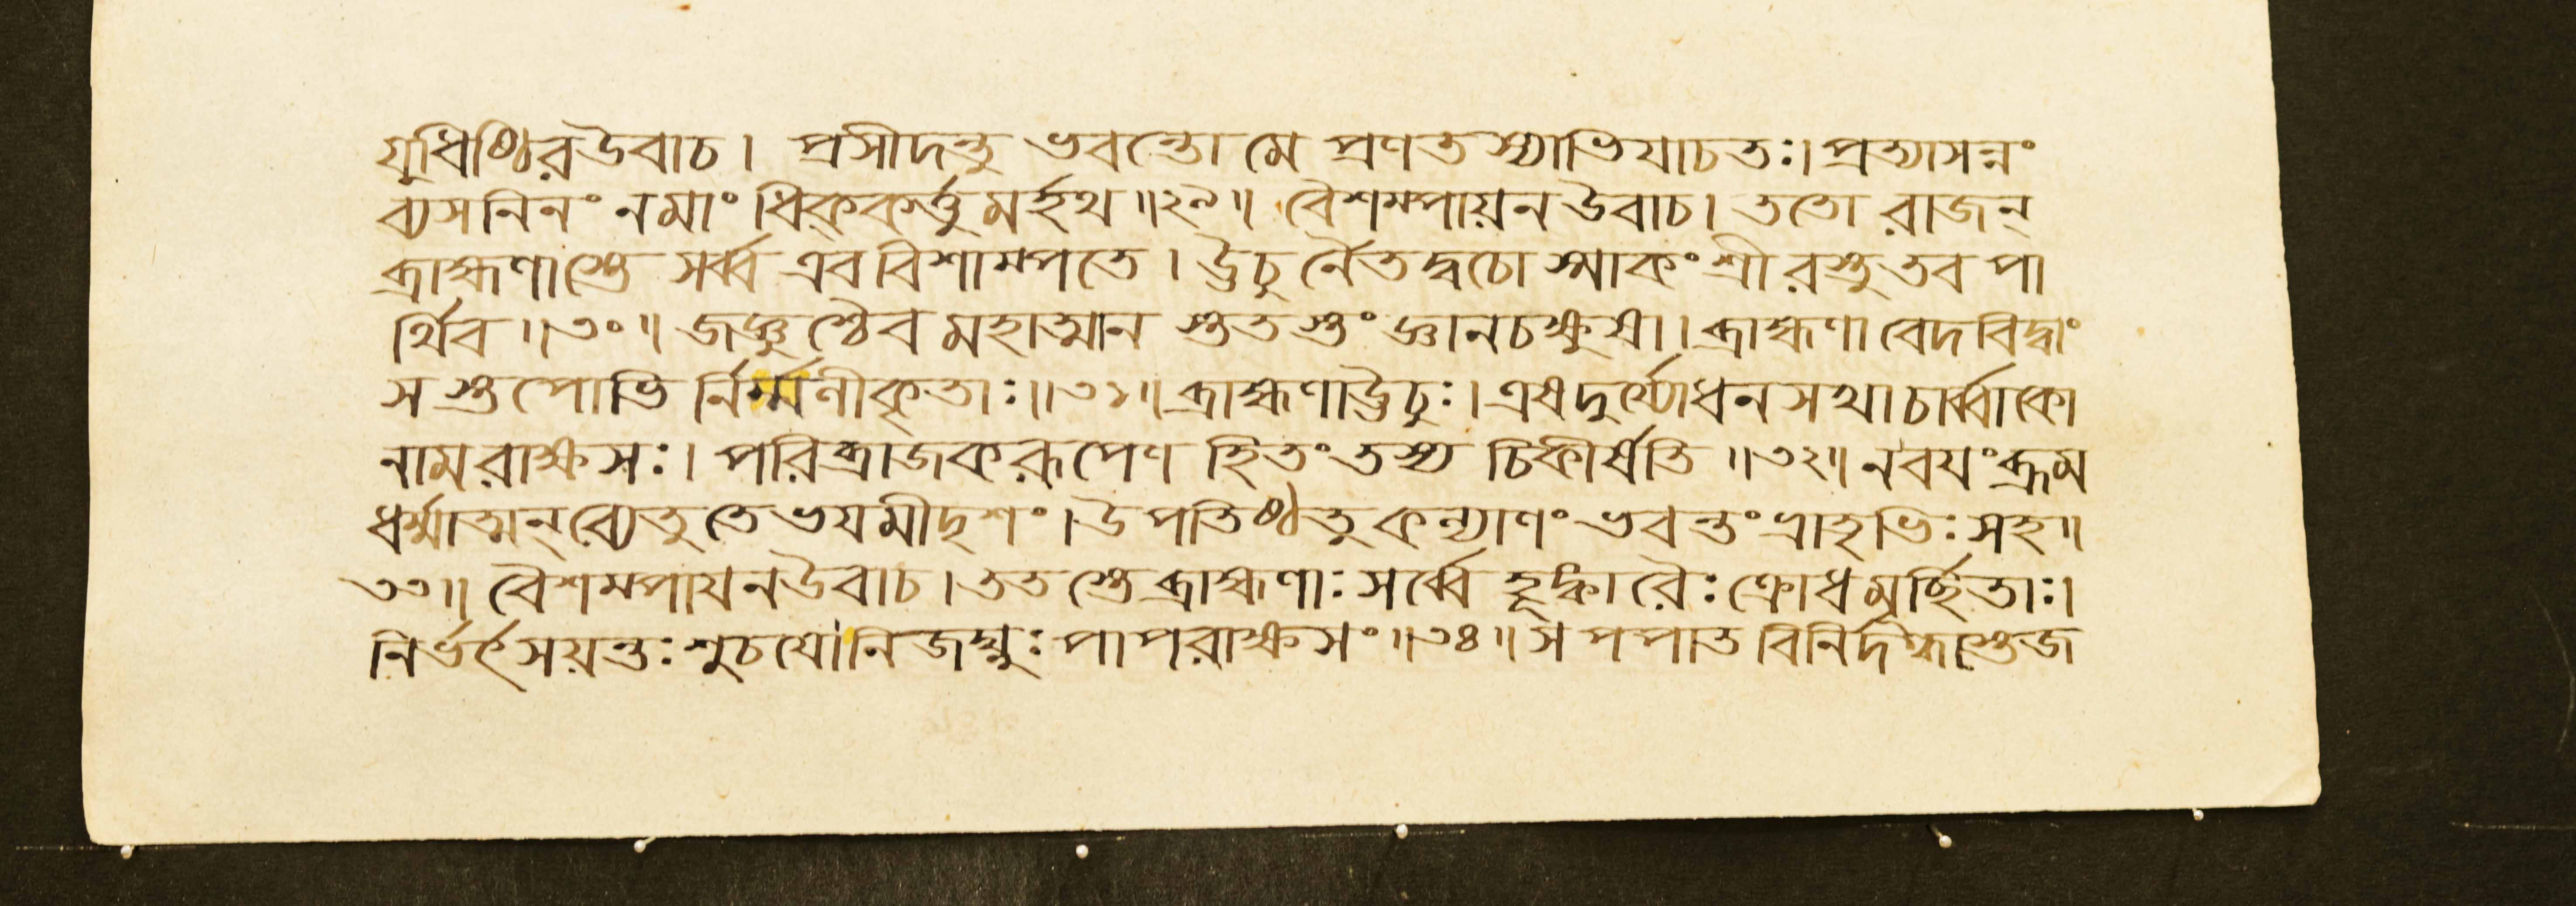 যুধিষ্ঠির উবাচ। প্রসীদন্তু ভবন্তো মে প্রণতস্যাভিযাচতঃ। প্রত্যাসন্নং
ব্যসনিনং নমাং ধিক্কর্ত্তুমর্হথ॥২৯॥ বৈশম্পায়ন উবাচ। ততো রাজন্
ব্রাহ্মণাস্তে সর্ব্ব এব বিশাম্পতে। ঊচুর্নৈতদ্বচোস্মাকং শ্রীরস্তু তব পা
র্থিব॥৩০॥ জজ্ঞুশ্চৈব মহাত্মান স্তুতস্তং জ্ঞানচক্ষুষা। ব্রাহ্মণা বেদবিদ্বাং
সস্তপোভি র্নির্ম্মলীকৃতাঃ॥৩১॥ ব্রাহ্মণাঊচুঃ। এষ দুর্য্যোধনসখা চার্ব্বাকো
নাম রাক্ষসঃ। পরিব্রাজকরূপেণ হিতং তস্য চিকীর্ষতি॥৩২॥ নবয়ং ব্রূম
ধর্ম্মাত্মন্ ব্যেতু তে ভয়মীদৃশং। উপতিষ্ঠতু কল্যাণং ভবন্তং ভ্রাতৃভিঃ সহ॥
৩৩॥ বৈশম্পায়ন উবাচ। ততস্তে ব্রাহ্মণাঃ সর্ব্বে হূঙ্কারৈঃ ক্রোধমূর্চ্ছিতাঃ।
নির্ভর্ৎসয়ন্তঃ শুচয়ো নিজঘ্নুঃ পাপরাক্ষসং॥৩৪॥ স পপাত বিনির্দগ্ধস্তেজ